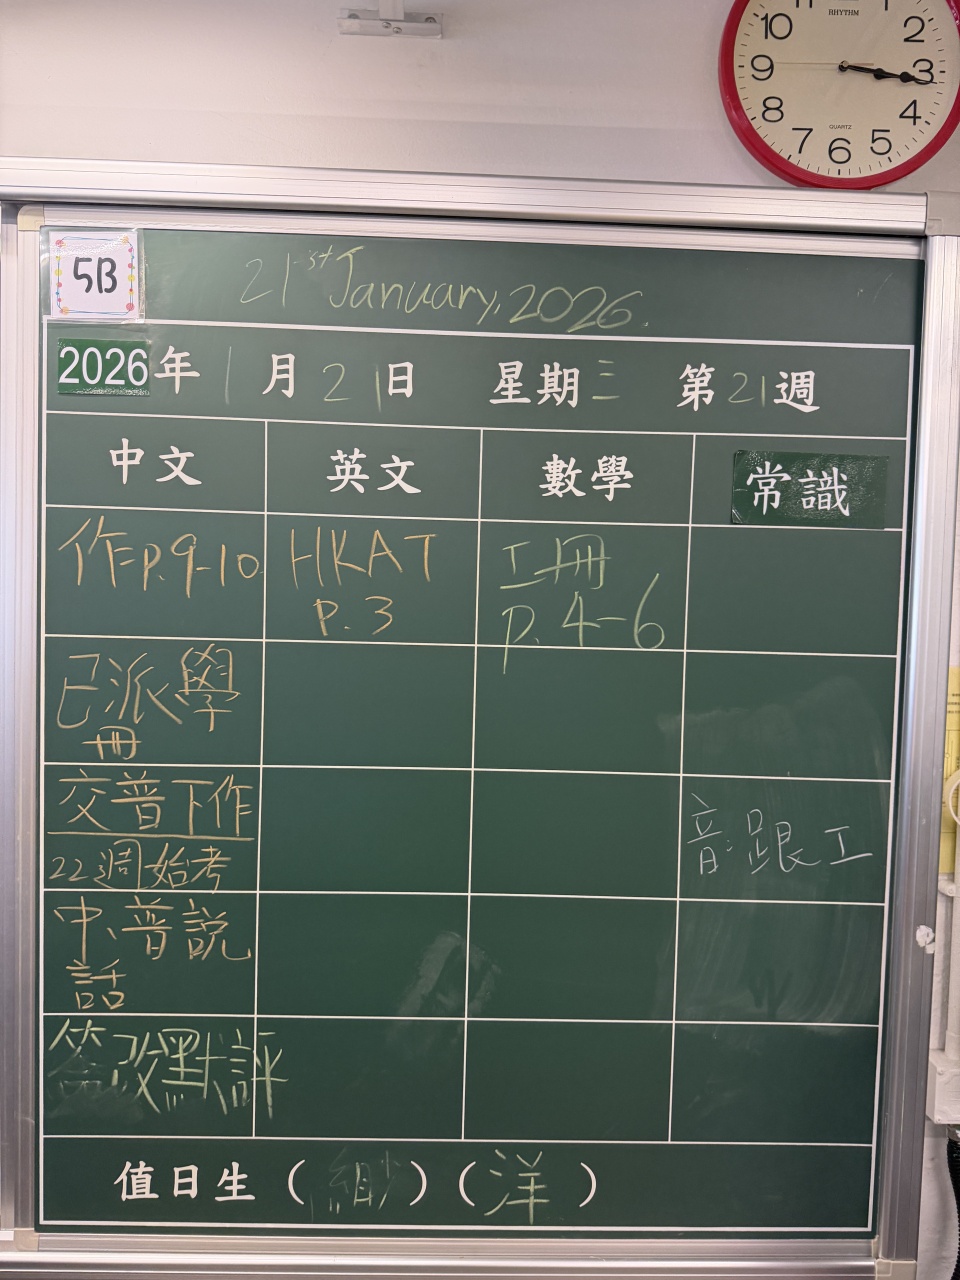 11 1
10 2
RHYTHM
9 3
8 4
QUARTZ
7 6 5
5B
21st January, 2026.
2026年1月21日 星期三 第21週
中文 英文 數學 常識
作P.9-10 HKAT P.3 工冊 P.4-6
已派學
冊
交普下作
22週始考
音:跟工
中、普說
話
簽改默評
值日生 ( ) (洋)